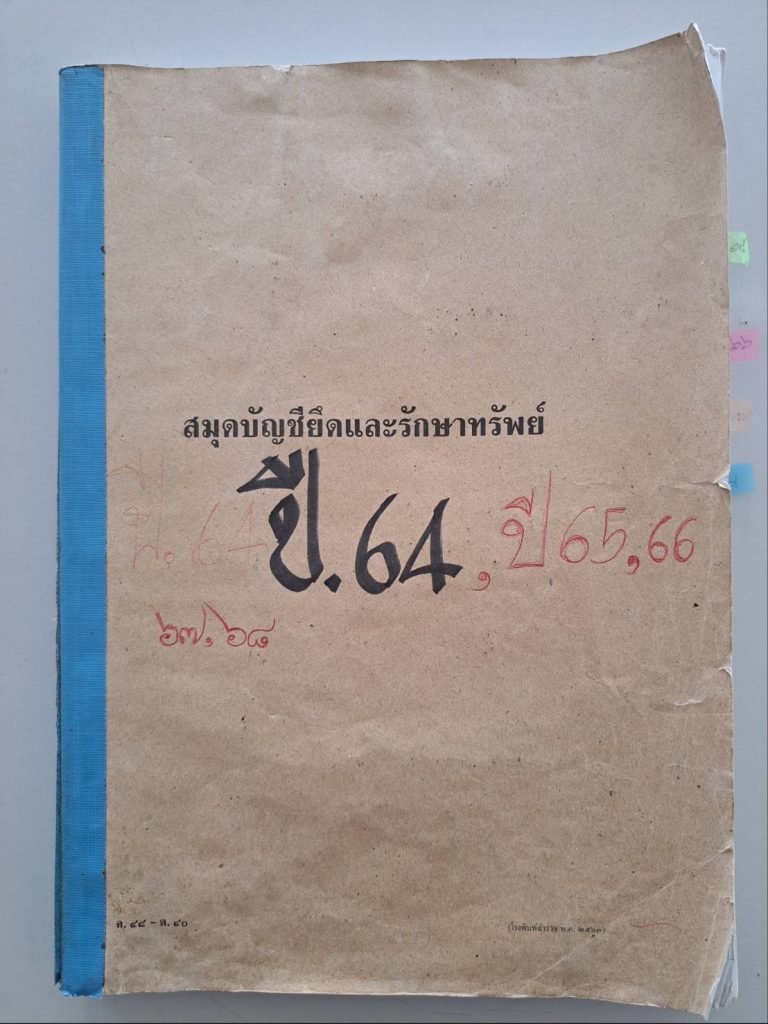 สมุดบัญชียึดและรักษาทรัพย์
ปี. 64 ปี. 64, ปี 65, 66
๖๗, ๖๘
ค. ๔๔ - ต. ๔๐
(โรงพิมพ์ตำรวจ พ.ศ. ๒๕๖๓)
๖๖